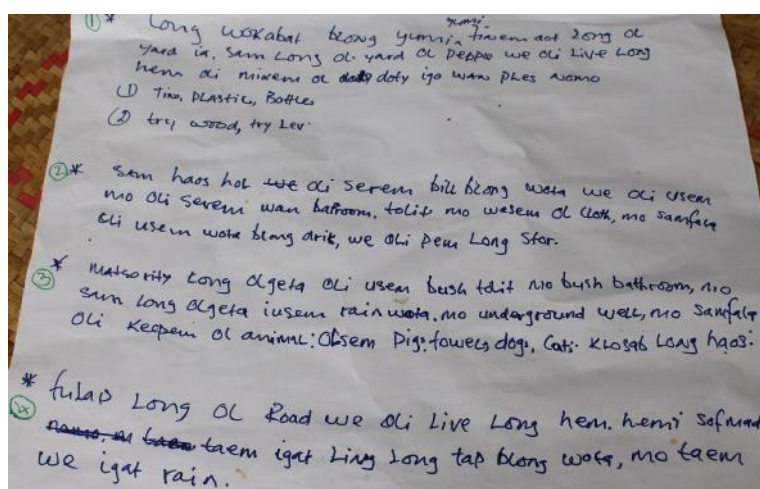 yumi.
① * Long wokabat blong yumi, finem aot long ol
yard ia, sam long ol yard ol people we oli Live Long
hem oli mixem ol doty igo wan ples nomo
① Tins, PLAstic, Bottles
② try wood, try Lev.
②* Sam haos hol we oli serem bill blong wota we oli usem
mo oli serem wan bafroom, tolit mo wasem ol cloth, mo samfala
oli usem wota blong drik, we oli pem Long Stor.
③ * Matsority Long olgeta oli usem bush tolit mo bush bathroom, mo
sum long olgeta iusem rain wota. mo underground well, mo samfala
oli keepem ol animal: Olsem Pigs, fowels, dogs, Cats. klosab Long haos.
④ * fulap Long OL Road we oli Live Long hem. hemi sofmad
taem igat Ling Long tap blong wota, mo taem
we igat rain.